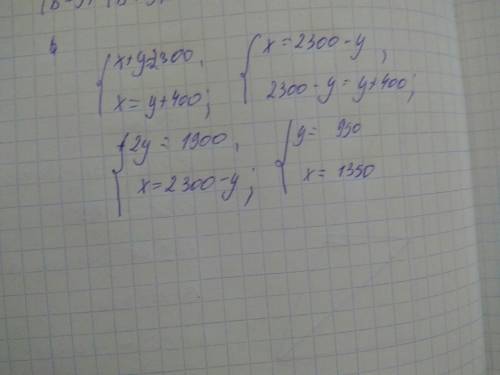 { x+y=2300,
x=y+400;
{ x=2300-y,
2300-y=y+400;
{ 2y=1900,
x=2300-y;
{ y= 950
x= 1350